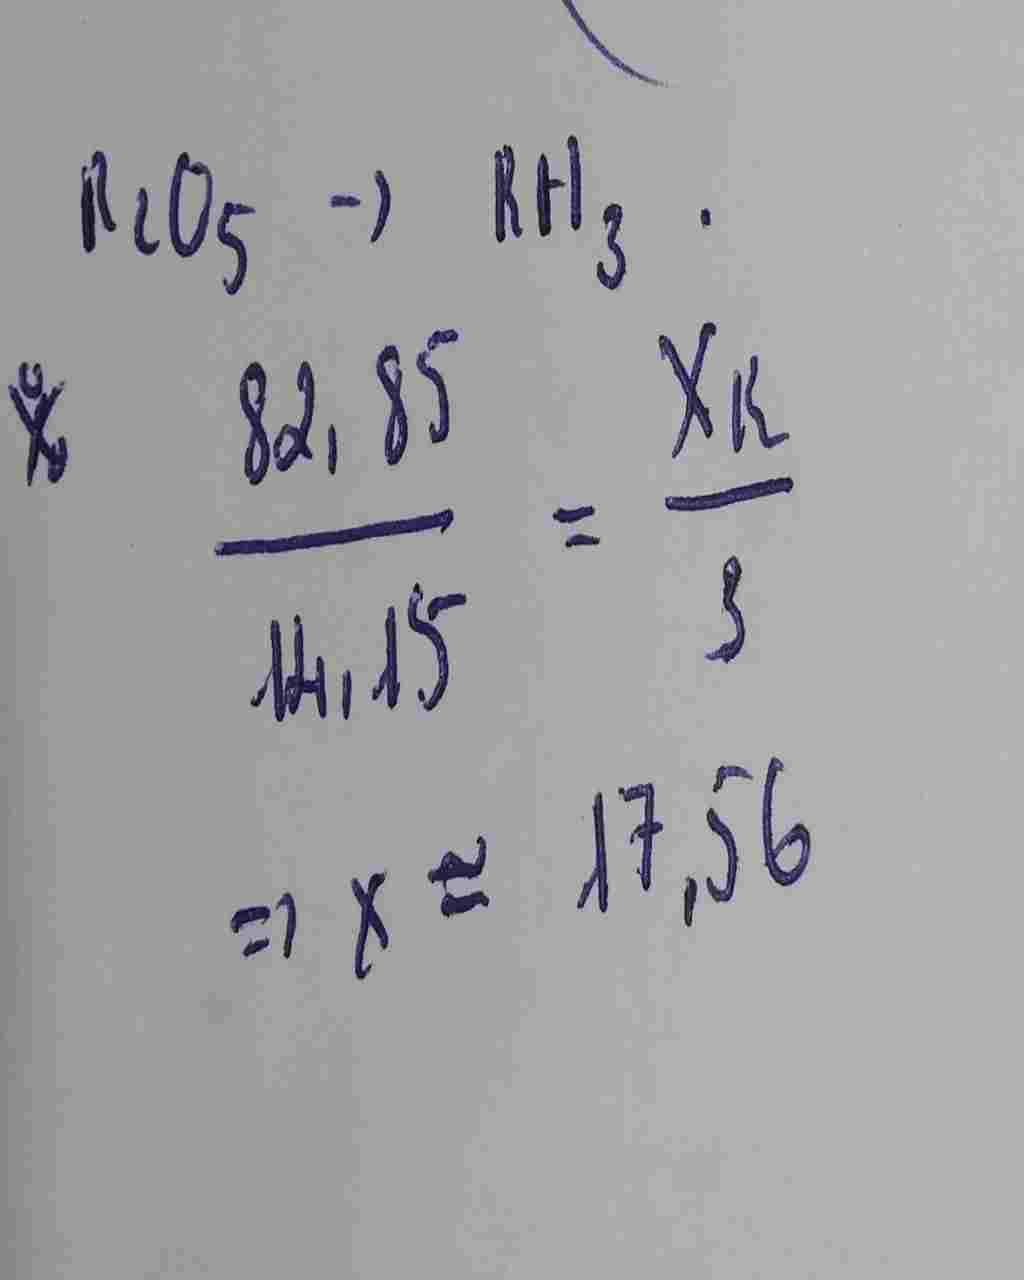 R₂O₅ → RH₃ .
% 82,85 / 14,15 = X_R / 3
=> x ≈ 17,56